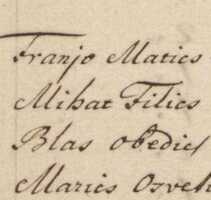 Franjo Matics
Mihat Filics
Blas obedics
Marics